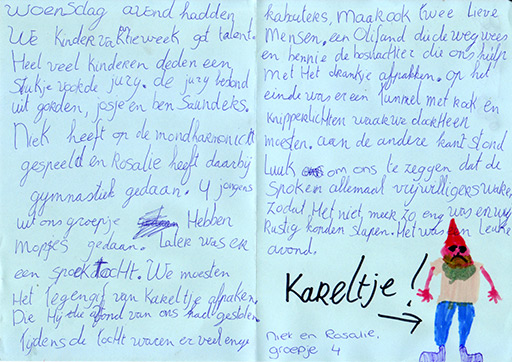 woensdag avond hadden
We Kindervaktieweek got talent.
Heel veel kinderen deden een
stukje voor de jury. de jury bestond
uit gorden, josje en ben Saunders.
Niek heeft op de mondharmonica
gespeeld en Rosalie heeft daarbij
gymnastiek gedaan. 4 jongens
uit ons groepje Hebben
mopjes gedaan. Later was er
een spooktocht. We moesten
Het tegengif van Kareltje afpaken,
Die Hij die avond van ons had gestolen.
Tijdens de tocht waren er veel enge
kabouters, Maar ook twee lieve
Mensen, een Olifand die de weg wees
en bennie de boswachter die ons hielp
met Het drankje afpakken. op het
einde was er een Tunnel met rook en
knipperlichten waar we doorheen
moesten. aan de andere kant stond
Luuk om ons te zeggen dat de
Spoken allemaal vrijwilligers waren,
zodat Het niet meer zo eng was en wij
Rustig konden slapen. Het was een leuke
avond.
Kareltje!
Niek en Rosalie.
groepje 4